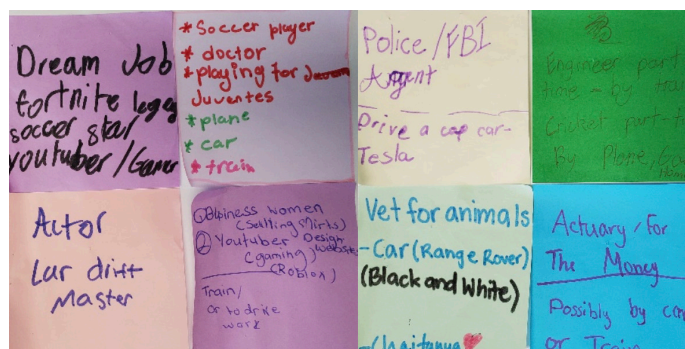 Dream Job
fortnite legend
soccer star
youtuber/Gamer
* Soccer player
* doctor
* playing for
Juventes
* plane
* car
* train
Police/FBI
Agent
Drive a cop car-
Tesla
Engineer part
time - by
Cricket part-
By Plane,
Actor
Car drift
Master
Buisness women
(Selling Shirts)
② Youtuber Design
(gaming) website
(Roblox)
Train/
or to drive
work
Vet for animals
-Car (Range Rover)
(Black and White)
-Chaitanya
Actuary/For
The Money
Possibly by car
or Train